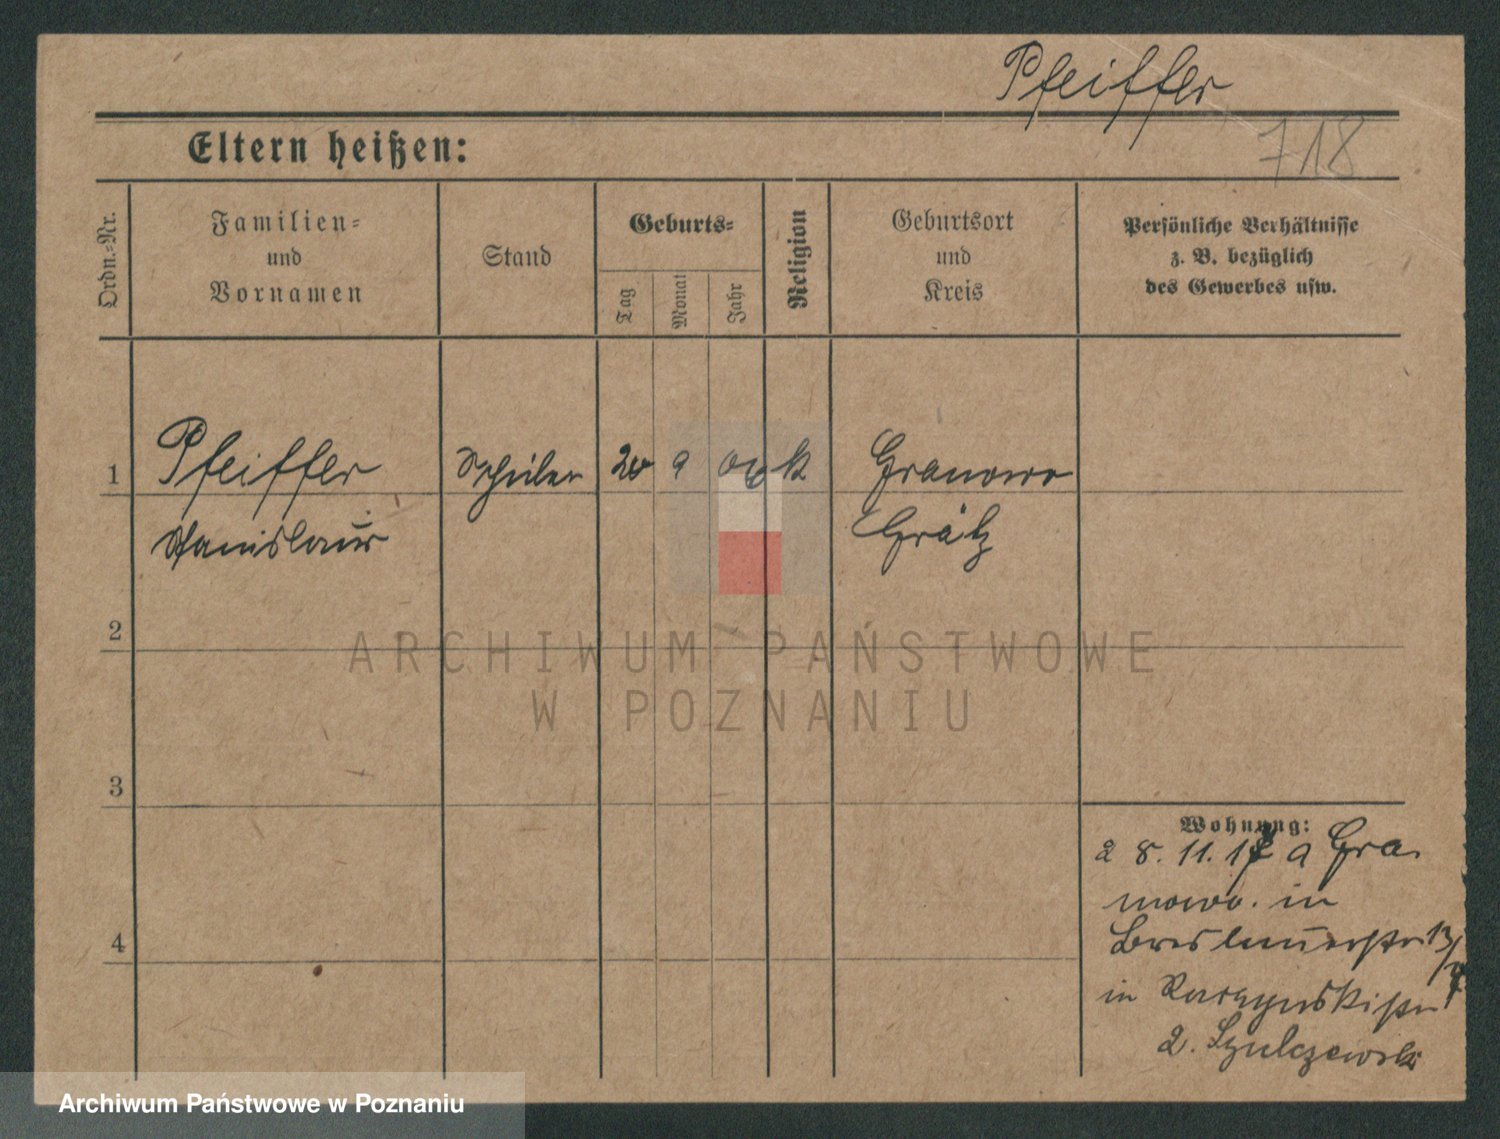 Pfeiffer
718
Eltern heißen:
Ordn.-Nr.
Familien-
und
Vornamen
Stand
Geburts-
Tag
Monat
Jahr
Religion
Geburtsort
und
Kreis
Persönliche Verhältnisse
z. B. bezüglich
des Gewerbes usw.
1 Pfeiffer Schüler 20 9 k Granowo
Stanislaus Grätz
2
ARCHIWUM PAŃSTWOWE
W POZNANIU
3
Wohnung:
8. 11. 17 a Gra-
nowo. in
Breslauerstr 13/
4
in
2. Szulczewski
Archiwum Państwowe w Poznaniu